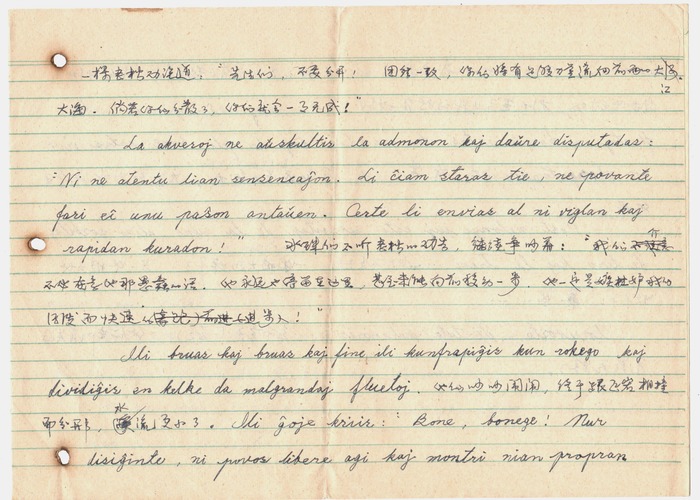 一棵老松劝道:“先生们,不要分开!团结一致,你们将有足够力量流向前面的大江
大海。倘若你们分散了,你们就会一事无成!”
La akveroj ne atuskultis la admonon kaj daŭre disputadas:
"Ni ne atentu lian sensencaĵon. Li ĉiam staras tie, ne povante
fari eĉ unu paŝon antaŭen. Certe li envias al ni viglan kaj
rapidan kuradon!" 水珠们不听老松的劝告,继续争吵着:“我们不
他那愚蠢的话。他永远停留在那里,甚至未能向前移动一步。他一定是嫉妒我们
而快速
Ili bruas kaj bruas kaj fine ili kunfrapiĝis kun rokego kaj
dividiĝis en kelke da malgrandaj fluetoj. 他们吵吵闹闹,终于跟巨岩相撞
而分开,水流更小了。Ili ĝoje kriis: "Bone, bonege! Nur
disiĝinte, ni povos libere agi kaj montri nian propran